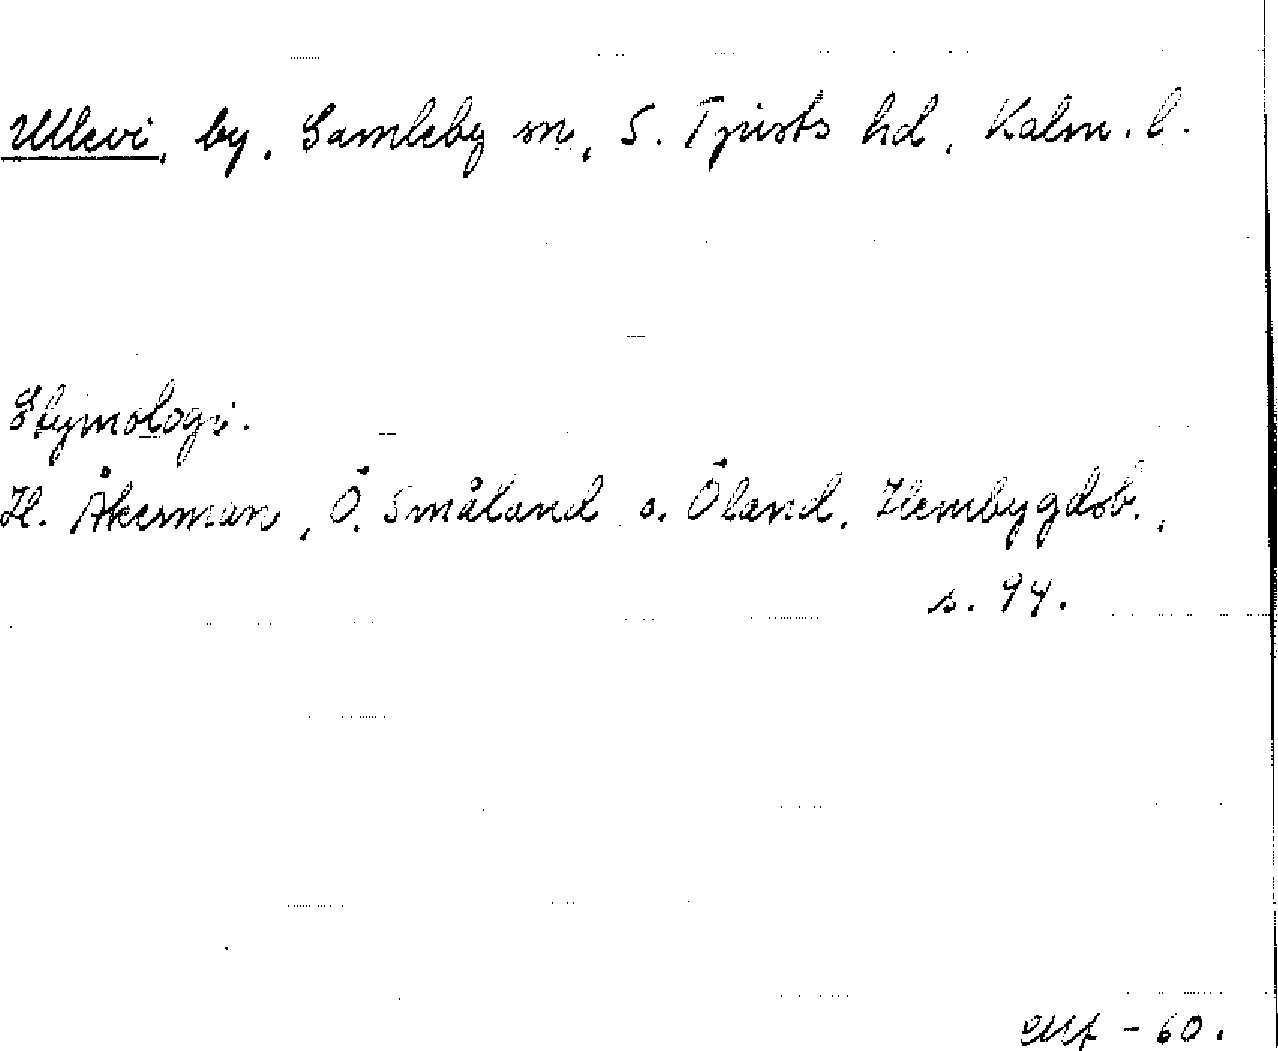 Ullevi, by, Gamleby sn, S. Tjusts hd, Kalm. l.
Etymologi.
H. Åkerman, Ö. Småland o. Öland. Hembygdsb.,
s. 94.
- 60.